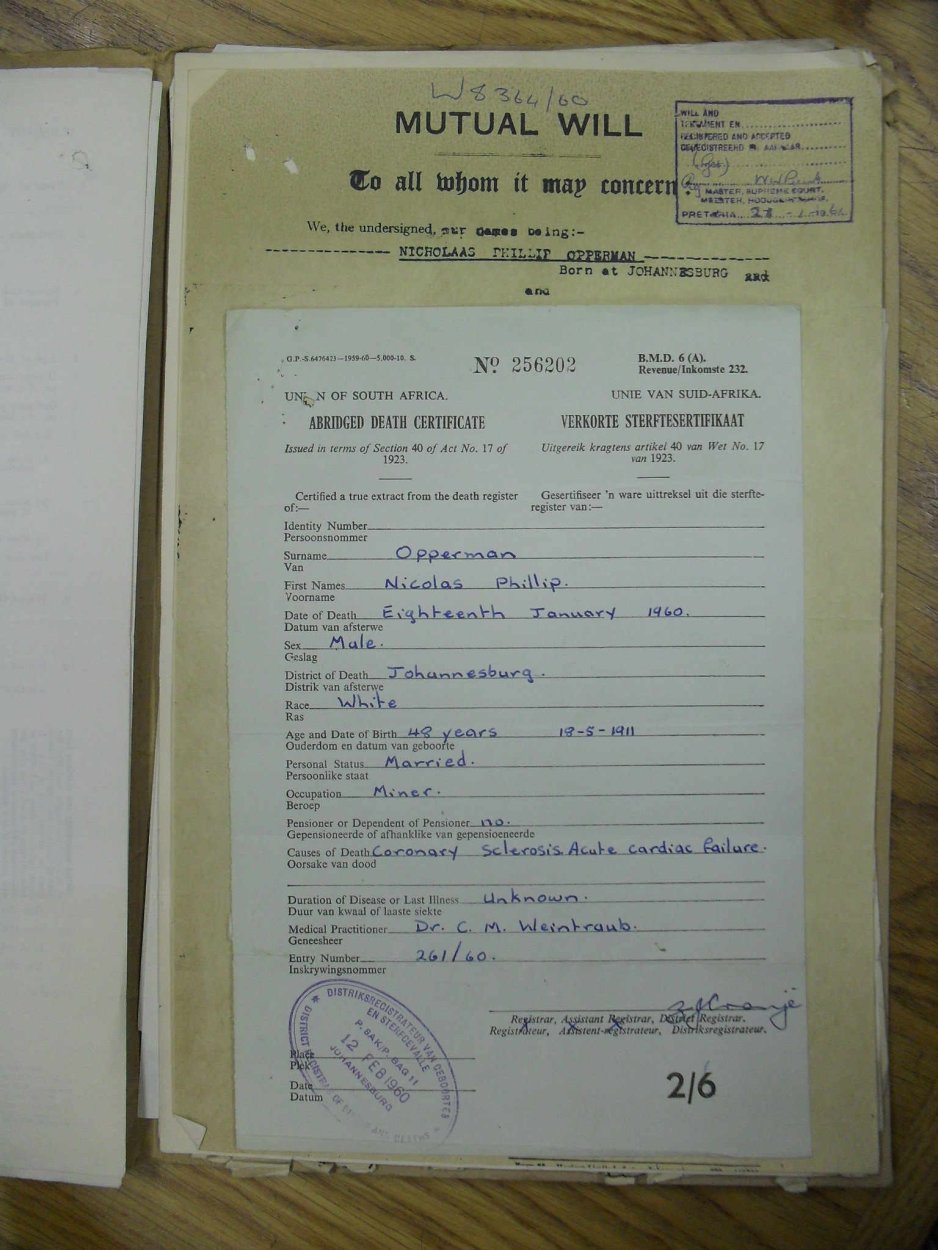 W 8364/60
MUTUAL WILL
WILL AND
TESTAMENT EN
REGISTERED AND ACCEPTED
GEREGISTREERD EN AANVAAR
MASTER, SUPREME COURT.
MEESTER, HOOGGEREGSHOF,
PRETORIA
To all whom it may concern
We, the undersigned, our names being:-
NICHOLAAS PHILLIP OPPERMAN
Born at JOHANNESBURG and
and
G.P.-S.6476423—1959-60—5,000-10. S.
No 256202
B.M.D. 6 (A).
Revenue/Inkomste 232.
UNION OF SOUTH AFRICA. UNIE VAN SUID-AFRIKA.
ABRIDGED DEATH CERTIFICATE VERKORTE STERFTESERTIFIKAAT
Issued in terms of Section 40 of Act No. 17 of
1923.
Uitgereik kragtens artikel 40 van Wet No. 17
van 1923.
Certified a true extract from the death register
of:—
Gesertifiseer 'n ware uittreksel uit die sterfte-
register van:—
Identity Number
Persoonsnommer
Surname Opperman
Van
First Names Nicolas Phillip.
Voorname
Date of Death Eighteenth January 1960.
Datum van afsterwe
Sex Male.
Geslag
District of Death Johannesburg.
Distrik van afsterwe
Race White
Ras
Age and Date of Birth 48 years 18-5-1911
Ouderdom en datum van geboorte
Personal Status Married.
Persoonlike staat
Occupation Miner.
Beroep
Pensioner or Dependent of Pensioner no.
Gepensioneerde of afhanklike van gepensioeneerde
Causes of Death Coronary Sclerosis Acute cardiac failure.
Oorsake van dood
Duration of Disease or Last Illness Unknown.
Duur van kwaal of laaste siekte
Medical Practitioner Dr. C. M. Weintraub.
Geneesheer
Entry Number 261/60.
Inskrywingsnommer
Registrar, Assistant Registrar, District Registrar.
Registrateur, Assistent-registrateur, Distriksregistrateur.
DISTRIKSREGISTRATEUR VAN GEBOORTES
EN STERFGEVALLE
P. SAK/P. BAG 11
12 FEB 1960
JOHANNESBURG
Place
Plek
Date
Datum
2/6